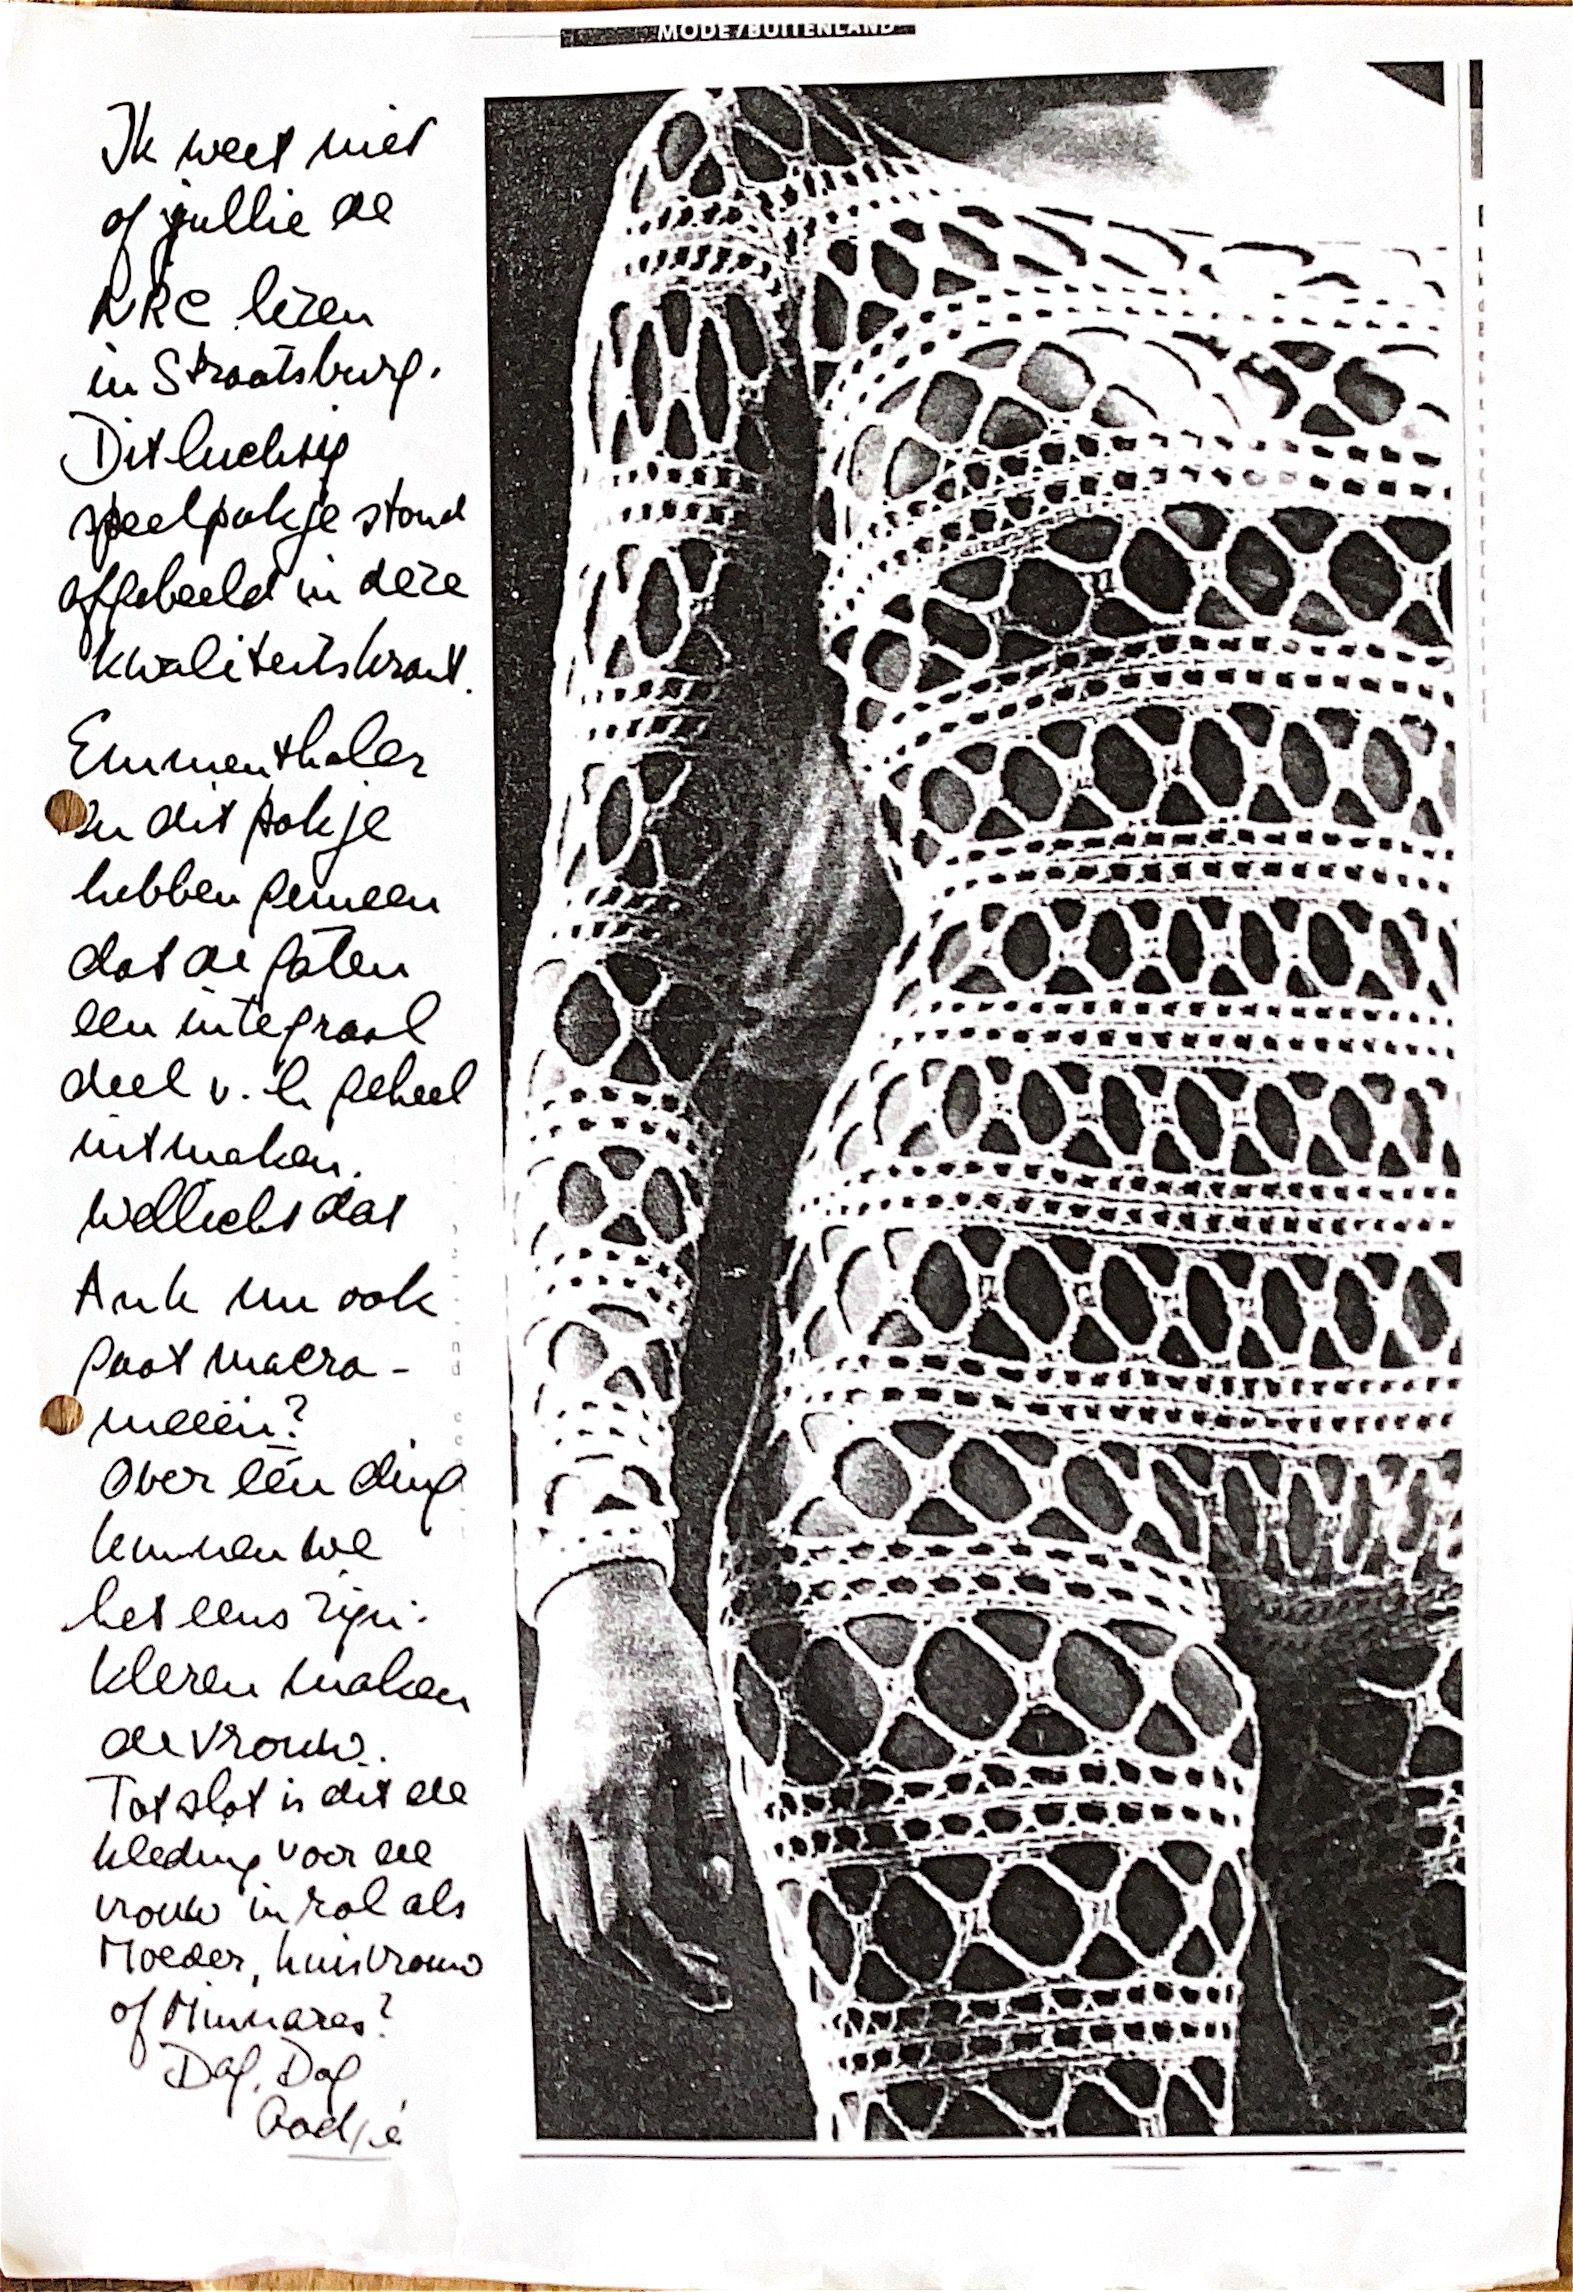 MODE/BUITENLAND
Ik weet niet
of jullie de
NRC lezen
in Straatsburg.
Dit luchtig
speelpakje stond
afgebeeld in deze
kwaliteitskrant.
Emmenthaler
en dit pakje
hebben gemeen
dat de gaten
een integraal
deel v. h geheel
uitmaken.
Wellicht dat
Ank nu ook
gaat macra-
meeën?
Over één ding
kunnen we
het eens zijn.
kleren maken
de vrouw.
Tot slot is dit de
kleding voor de
vrouw in rol als
Moeder, huisvrouw
of Minnares?
Dag, Dag
Aadjé